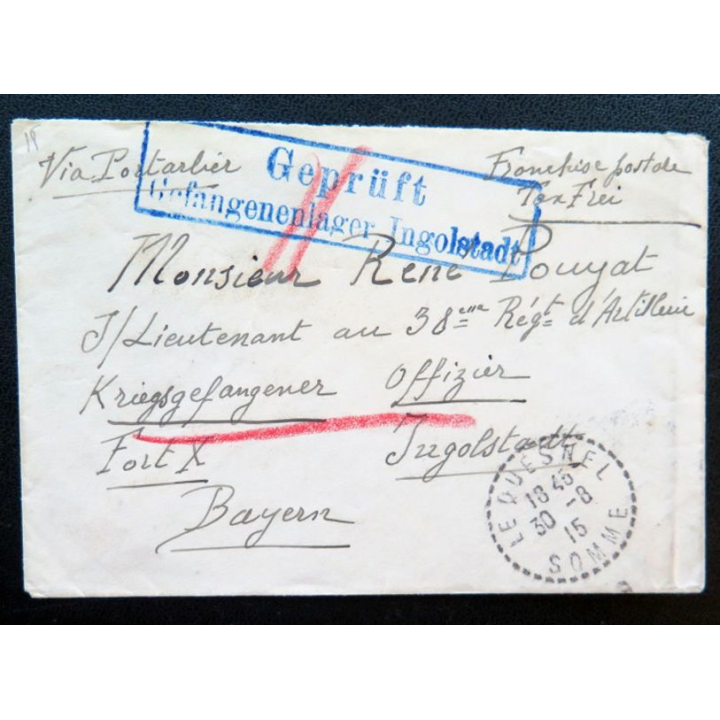 18
Via Pontarlier
Franchise postale
Tax Frei
Geprüft
Gefangenenlager Ingolstadt
Monsieur René Pouyat
S/Lieutenant au 38ème Régt d'Artillerie
Kriegsgefangener Offizier
Fort X Ingolstadt
Bayern
LE QUESNEL
18 45
30 -8
15
SOMME